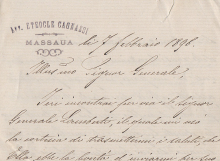 Avv. ETEOCLE CAGNASSI
MASSAUA
li 7 febbraio 1896.
Illus.mo Signor Generale,
Ieri incontrai per via il signor
Generale Lamberti, il quale mi usò
la cortesia di trasmettermi i saluti, che
Ella ebbe la bontà d'inviarmi per